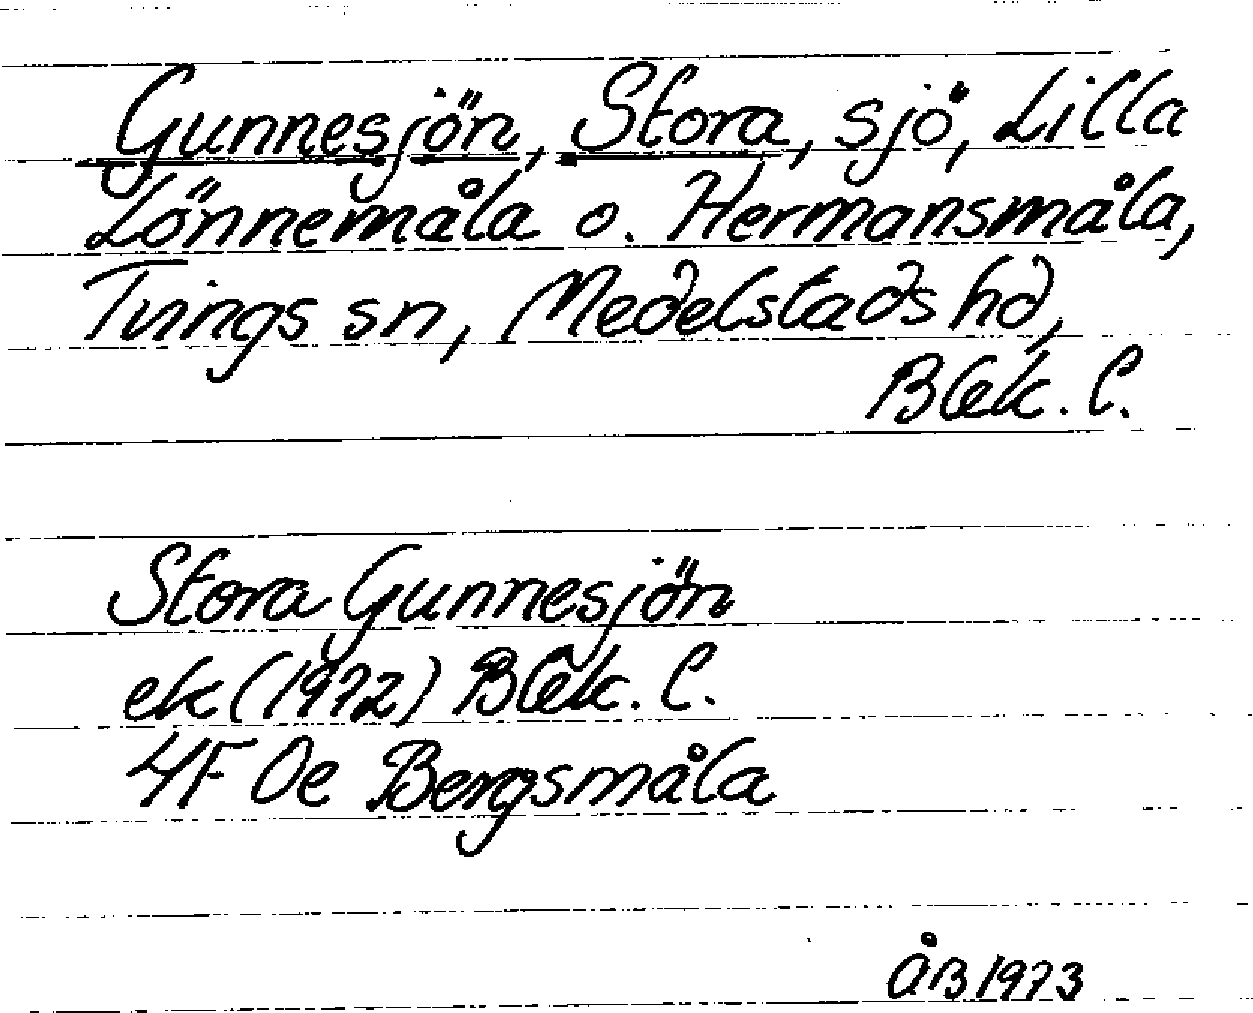 Gunnesjön, Stora, sjö, Lilla
Lönnemåla o. Hermansmåla,
Tvings sn, Medelstads hd,
Blek. l.
Stora Gunnesjön
ek (1972) Blek. l.
4F 0e Bergsmåla
ÅB 1973